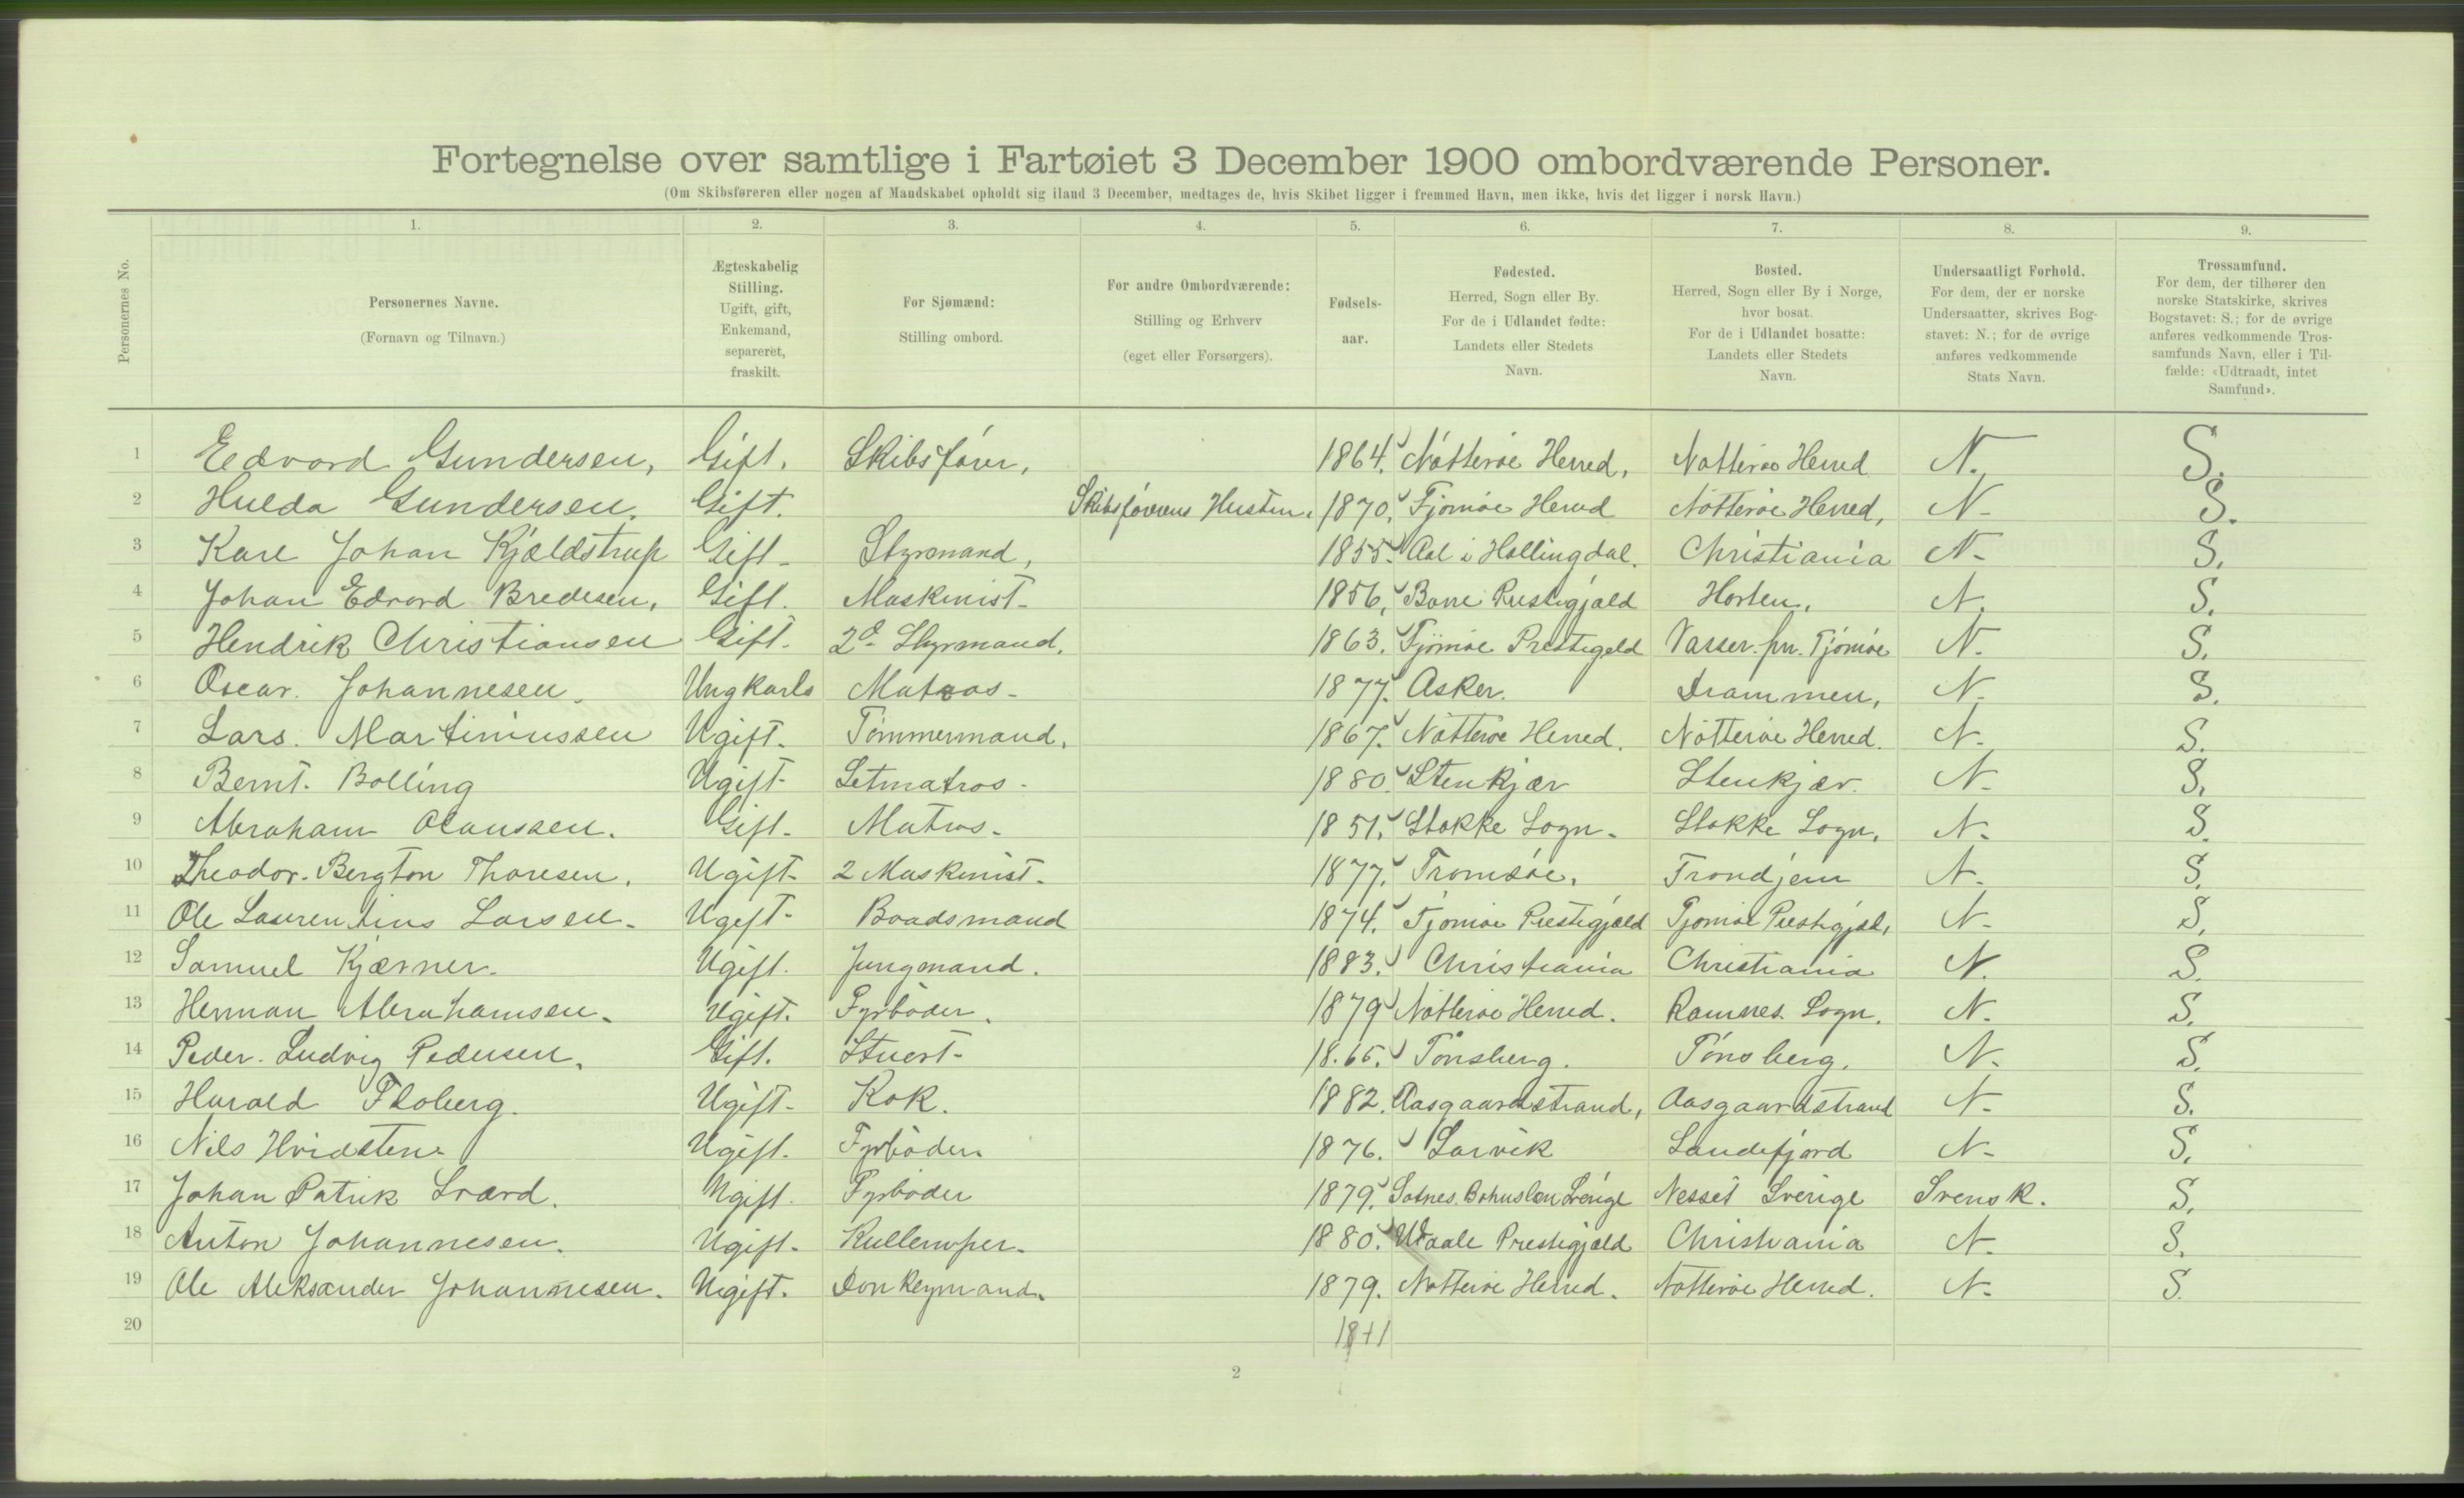 Fortegnelse over samtlige i Fartøiet 3 December 1900 ombordværende Personer.
(Om Skibsføreren eller nogen af Mandskabet opholdt sig iland 3 December, medtages de, hvis Skibet ligger i fremmed Havn, men ikke, hvis det ligger i norsk Havn.)
Personernes No.
1. 2. 3. 4. 5. 6. 7. 8. 9.
Personernes Navne.
(Fornavn og Tilnavn.)
Ægteskabelig
Stilling.
Ugift, gift,
Enkemand,
separeret,
fraskilt.
For Sjømænd:
Stilling ombord.
For andre Ombordværende:
Stilling og Erhverv
(eget eller Forsørgers).
Fødsels-
aar.
Fødested.
Herred, Sogn eller By.
For de i Udlandet fødte:
Landets eller Stedets
Navn.
Bosted.
Herred, Sogn eller By i Norge,
hvor bosat.
For de i Udlandet bosatte:
Landets eller Stedets
Navn.
Undersaatligt Forhold.
For dem, der er norske
Undersaatter, skrives Bog-
stavet: N.; for de øvrige
anføres vedkommende
Stats Navn.
Trossamfund.
For dem, der tilhører den
norske Statskirke, skrives
Bogstavet: S.; for de øvrige
anføres vedkommende Tros-
samfunds Navn, eller i Til-
fælde: «Udtraadt, intet
Samfund».
1 Edvard Gundersen, Gift. Skibsfører, 1864. Nøtterøe Herred, Nøtterøe Herred N. S.
2 Hulda Gundersen. Gift. Skibsførerens Hustru. 1870. Tjømøe Herred Nøtterøe Herred, N- S.
3 Karl Johan Kjældstrup Gift- Styrmand, 1855. Aal i Hallingdal. Christiania N- S.
4 Johan Edvard Bredesen, Gift. Maskinist- 1856, Borre Prestegjæld Horten, N. S.
5 Hendrik Christiansen Gift. 2d Styrmand. 1863. Tjømøe Prestegeld Vasser. pr. Tjømøe N. S.
6 Oscar. Johannesen. Ungkarls Matros- 1877. Asker. Drammen, N. S.
7 Lars. Martiniussen Ugift- Tømmermand. 1867. Nøtterøe Herred. Nøtterøe Herred. N. S.
8 Bernt. Bolling Ugift- Letmatros- 1880. Stenkjær Stenkjær. N- S.
9 Abraham Olaussen. Gift- Matros- 1851. Stokke Sogn- Stokke Sogn, N- S.
10 Theodor. Bergton Thoresen. Ugift- 2 Maskinist- 1877. Tromsøe. Trondjem N. S.
11 Ole Laurentius Larsen- Ugift- Baadsmand 1874. Tjømøe Prestegjæld Tjømøe Prestegjæl. N- S.
12 Samuel Kjærner- Ugift. Jungmand. 1883. Christiania Christiania N. S.
13 Herman Abrahamsen. Ugift. Fyrbøder. 1879 Nøtterøe Herred. Ramnes Sogn. N. S.
14 Peder. Ludvig Pedersen. Gift. Stuert- 18.65. Tønsberg. Tønsberg. N. S.
15 Harald Floberg. Ugift- Kok. 1882. Aasgaardstrand, Aasgaardstrand N- S.
16 Nils Hvidsten- Ugift. Fyrbøder. 1876. Larvik Sandefjord N- S.
17 Johan Patrik Sværd. Ugift. Fyrbøder 1879. Bohuslen Sverige Sverige Svensk. S.
18 Anton Johannesen. Ugift- Kullemper. 1880. Vaale Prestegjæld Christiania N- S.
19 Ole Aleksander Johannesen. Ugift. Donkeymand. 1879. Nøtterøe Herred. Nøtterøe Herred. N- S.
20 18+1
2